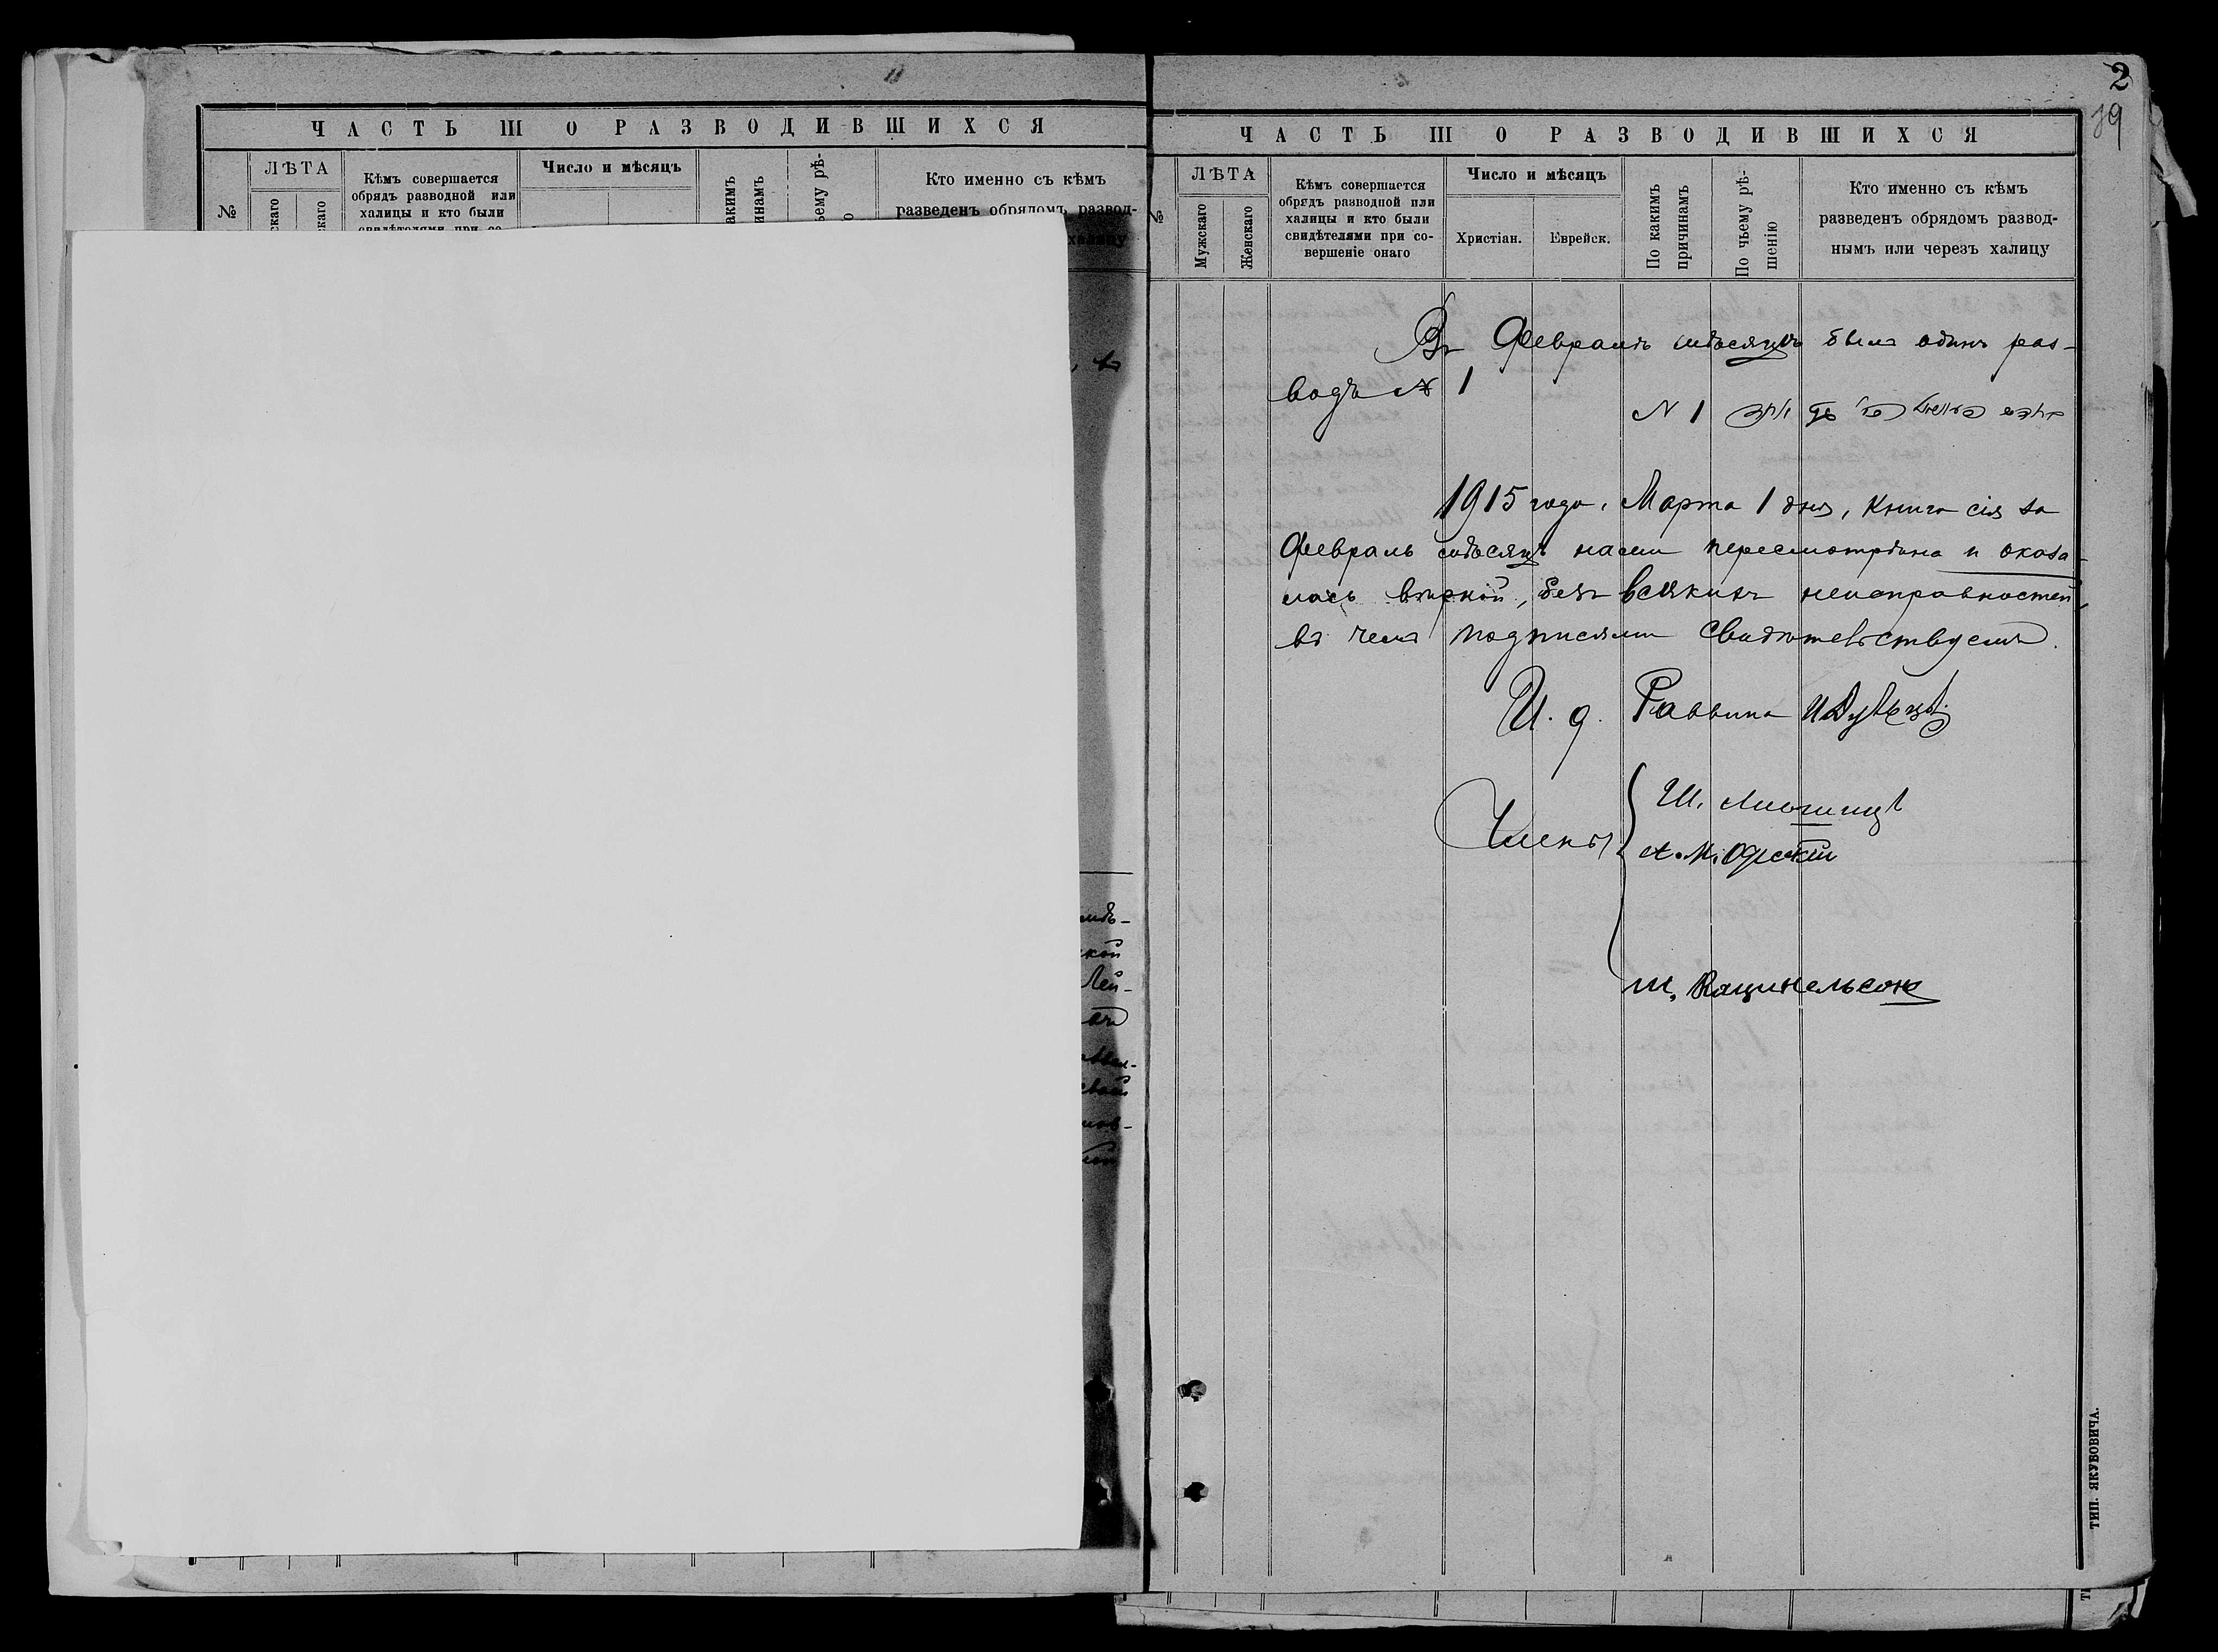 ЧАСТЬ III О РАЗВОДИВШИХСЯ
№
ЛѢТА
скаго
скаго
Кѣмъ совершается
обрядъ разводной или
халицы и кто были
свидѣтелями при со-
Число и мѣсяцъ
акимъ
инамъ
ьему рѣ-
Кто именно съ кѣмъ
разведенъ обрядомъ развод-
халицу
, въ
кой
Лей-
2
19
ЧАСТЬ III О РАЗВОДИВШИХСЯ
№
ЛѢТА
Мужскаго
Женскаго
Кѣмъ совершается
обрядъ разводной или
халицы и кто были
свидѣтелями при со-
вершеніе онаго
Число и мѣсяцъ
Христіан.
Еврейск.
По какимъ
причинамъ
По чьему рѣ-
шенію
Кто именно съ кѣмъ
разведенъ обрядомъ развод-
нымъ или черезъ халицу
Въ Февралѣ мѣсяцѣ былъ одинъ раз-
водъ № 1
N 1
1915 года, Марта 1 дня, книга сія за
Февраль мѣсяцъ нами пересмотрѣна и оказа-
лась вѣрной, безъ всякихъ неисправностей,
въ чемъ подписями свидѣтельствуемъ.
И. д. Раввина
Члены
Ш.
А. М.
Ш. Кацнельсонъ
ТИП. ЯКУБОВИЧА.